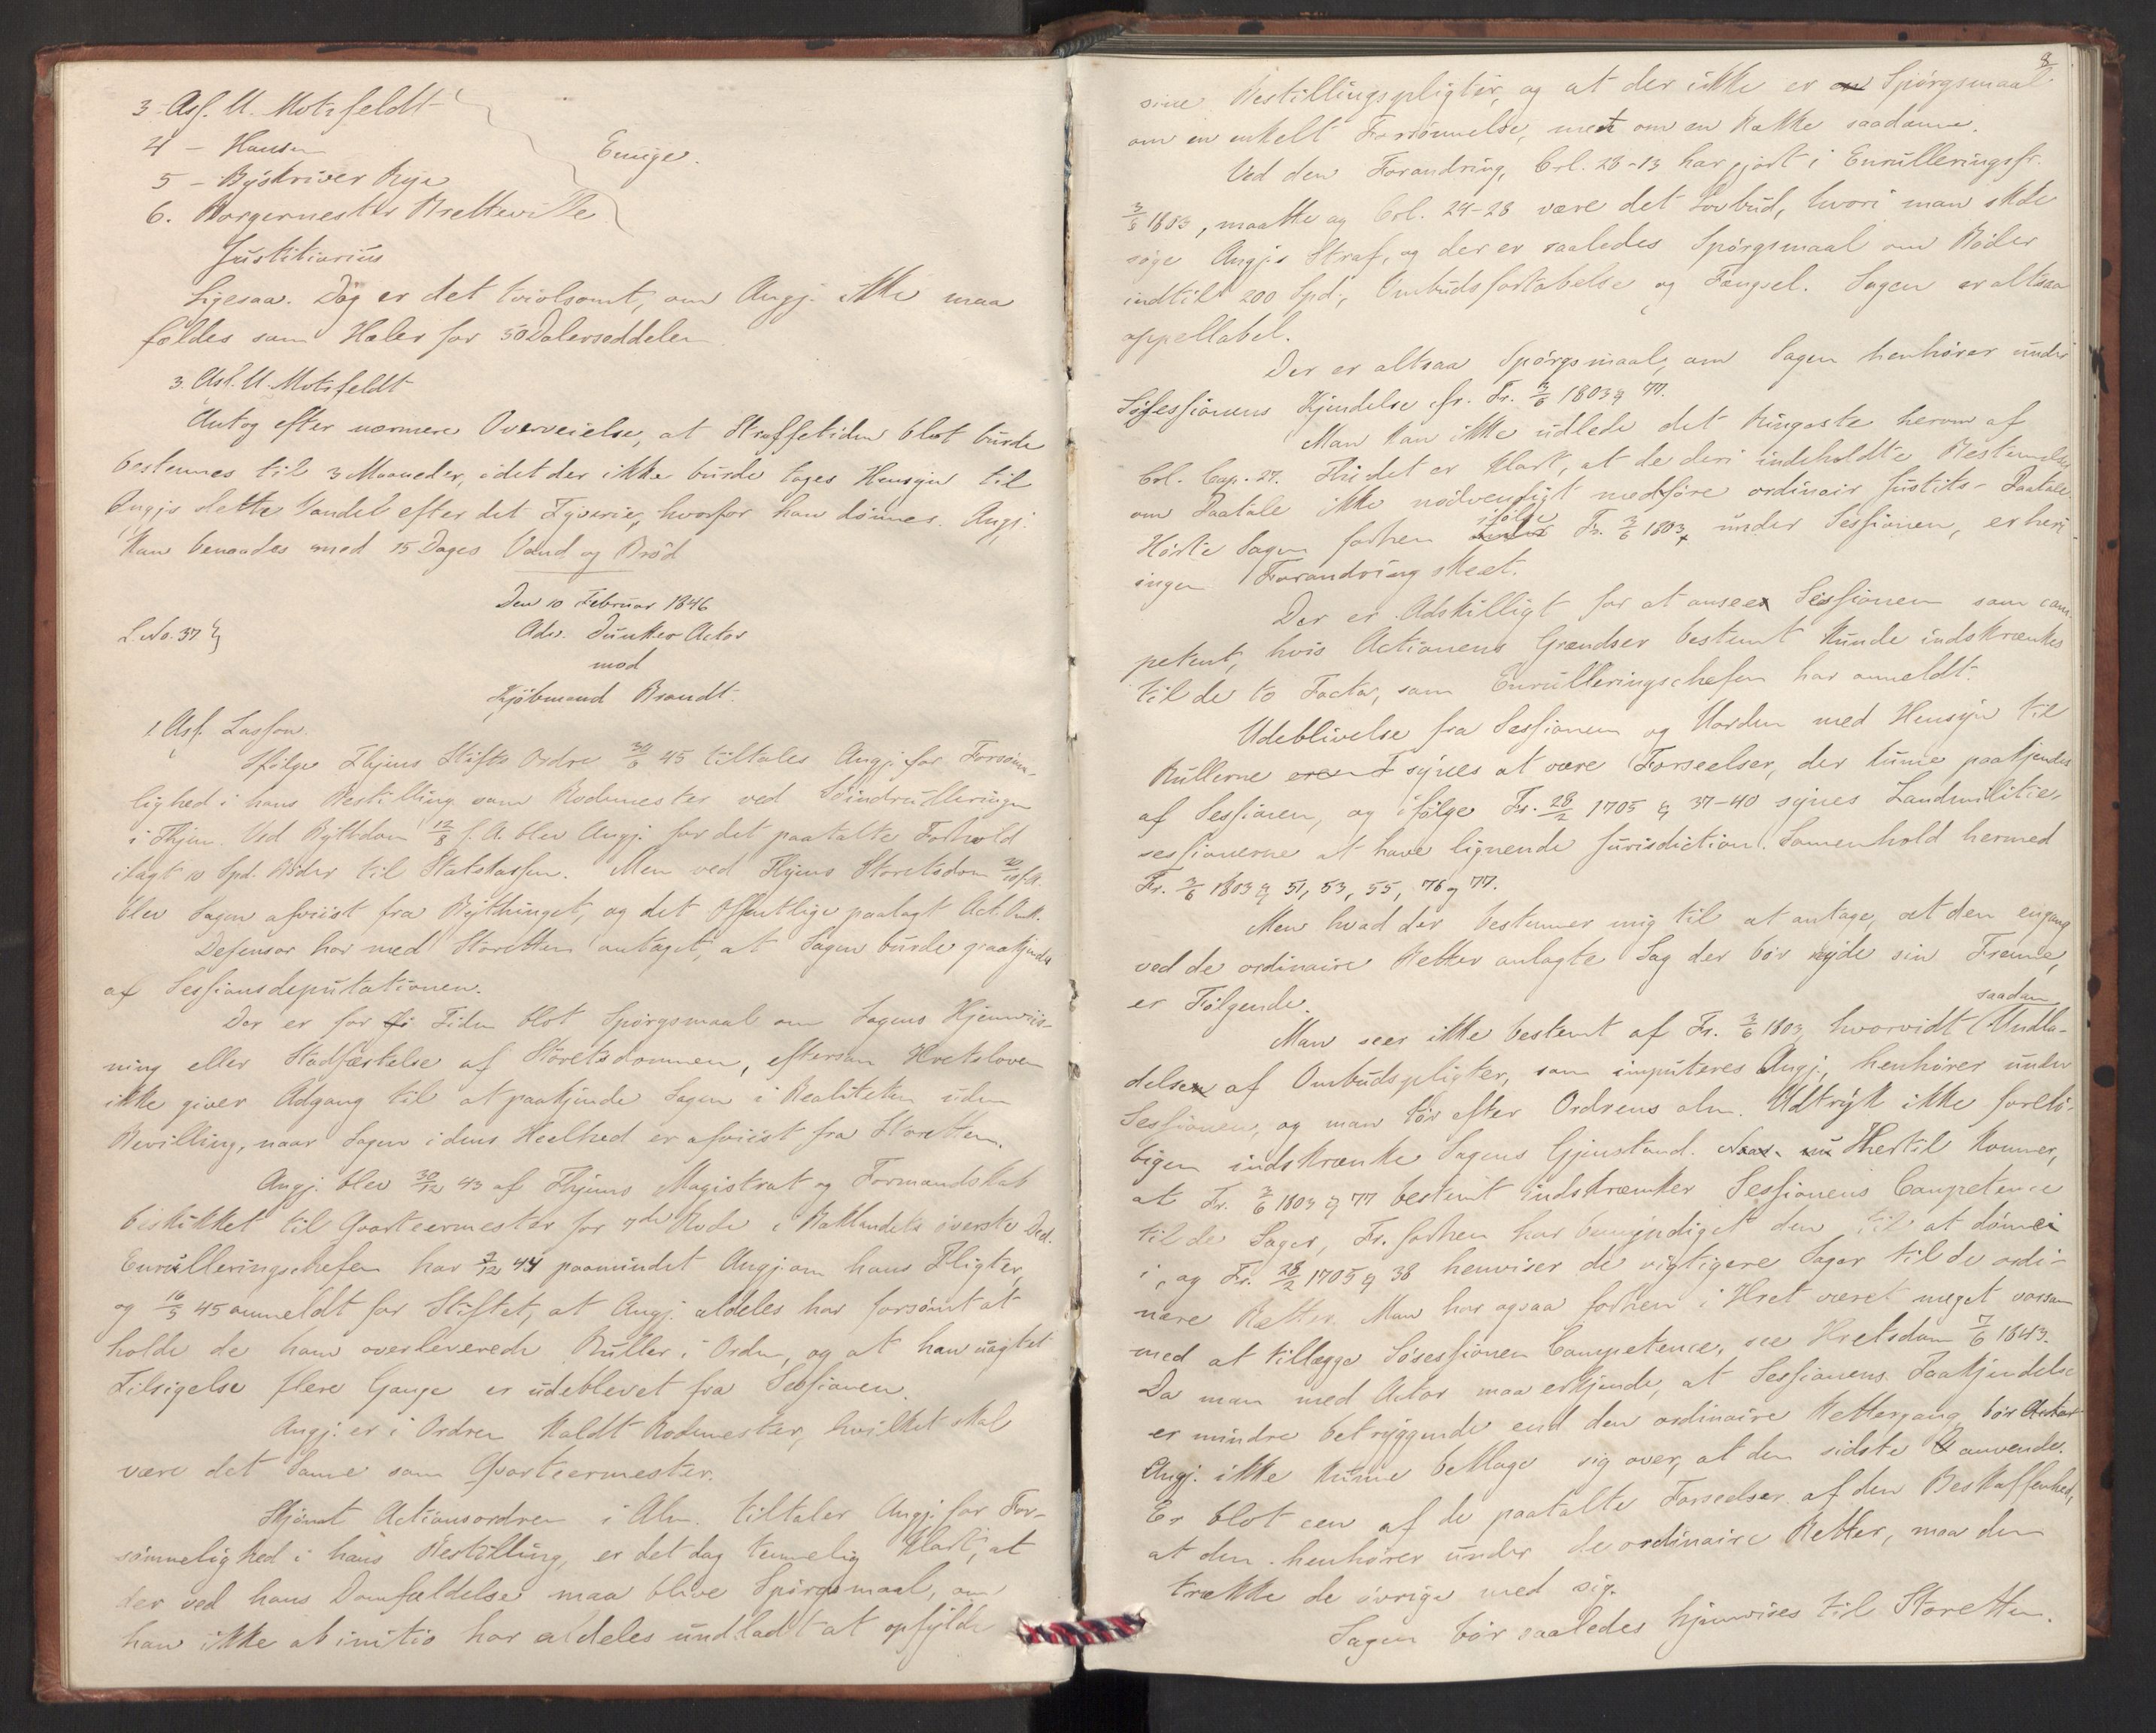 3. Ass. U. Motzfeldt
4 – Hansen
Enige.
5 – Byskriver Rye
6. Borgermester Bretteville
Justitiarius
Ligesaa. Dog er det tvivlsomt, om Angj. ikke maa
fældes som Hæler for 50 Dalerseddelen.
3. Ass. U. Motzfeldt
Antog efter nærmere Overveielse, at Straffetiden blot burde
bestemmes til 3 Maaneder, idet der ikke burde tages Hensyn til
Angjs slette Vandel efter det Tyverie, hvorfor han dømmes. Angj.
kan benaades med 15 Dages Vand og Brød
Den 10 Februar 1846
L. No. 37
Adv. Dunker Actor
mod
Kjøbmand Brandt.
1. Ass. Lasson.
Ifølge Thjems Stifts Ordre 30/6 45 tiltales Angj. for Forsøm-
lighed i hans Bestilling som Rodemester ved Søindrulleringen
i Thjem. Ved Bythdom 12/8 f. A. blev Angj. for det paatalte Forhold
ilagt 10 Spd. Bøder til Statskassen. Men ved Thjems Storetsdom 20/10 f. A.
blev Sagen afviist fra Bythinget, og det Offentlige paalagt Act. Omk.
Defensor har med Storetten antaget, at Sagen burde paakjendes
af Sessionsdeputationen.
Der er for Tiden blot Spørgsmaal om Sagens Hjemviis-
ning eller Stadfæstelse af Storetsdommen, eftersom Hretsloven
ikke giver Adgang til at paakjende Sagen i Realiteten uden
Bevilling, naar Sagen i dens Heelhed er afviist fra Storetten.
Angj. blev 30/12 43 af Thjems Magistrat og Formandskab
beskikket til Qvarteermester for 7de Rode i Baklandets øverste Deel.
Enrulleringschefen har 2/12 44 paamindet Angj. om hans Pligter,
og 16/5 45 anmeldt for Stiftet, at Angj. aldeles har forsømt at
holde de ham overleverede Ruller i Orden, og at han uagtet
Tilsigelse flere Gange er udeblevet fra Sessionen.
Angj. er i Ordren kaldt Rodemester, hvilket skal
være det Samme som Qvarteermester.
Skjønt Actionsordren i Alm. tiltaler Angj. for For-
sømmelighed i hans Bestilling, er det dog temmelig klart, at
der ved hans Domfældelse maa blive Spørgsmaal, om
han ikke ab initio har aldeles undladt at opfylde
8
sine Bestillingspligter, og at der ikke er Spørgsmaal
om en enkelt Forsømmelse, men om en Række saadanne.
Ved den Forandring, Crl. 28-13 har gjort i Enrulleringsfr.
3/6 1803, maatte og Crl. 24-28 være det Lovbud, hvori man skde
søge Angjs Straf, og der er saaledes Spørgsmaal om Bøder
indtil 200 Spd., Ombudsfortabelse og Fængsel. Sagen er altsaa
appellabel.
Der er altsaa Spørgsmaal, om Sagen henhører under
Søsessionens Kjendelse cfr. Fr. 3/6 1803 § 77.
Man kan ikke udlede det Ringeste herom af
Crl. Cap. 27. Thi det er klart, at de deri indeholdte Bestemmelser
om Paatale ikke nødvendigt medføre ordinair Justits-Paatale.
Hørte Sagen forhen ifølge Fr. 3/6 1803, under Sessionen, er heri
ingen Forandring skeet.
Der er Adskilligt for at ansee Sessionen som com-
petent, hvis Actionens Grændser bestemt kunde indskrænkes
til de to Facta, som Enrulleringschefen har anmeldt.
Udeblivelse fra Sessionen og Uorden med Hensyn til
Rullerne synes at være Forseelser, der kunne paakjendes
af Sessionen, og ifølge Fr. 28/2 1705 § 37-40 synes Landmilitie-
sessionerne at have lignende Jurisdiction. Samenhold hermed
Fr. 3/6 1803 § 51, 53, 55, 76 og 77.
Men hvad der bestemmer mig til at antage, at den engang
ved de ordinaire Retter anlagte Sag der bør nyde sin Fremme,
er Følgende.
Man seer ikke bestemt af Fr. 3/6 1803, hvorvidt saadan Undla-
delse af Ombudspligter, som imputeres Angj., henhører under
Sessionen, og man tør efter Ordrens alm. Udtryk ikke forelø-
bigen indskrænke Sagens Gjenstand. Hertil kommer,
at Fr. 3/6 1803 § 77 bestemt indskrænker Sessionens Competence
til de Sager, Fr. forhen har bemyndiget den til at dømme
i, og Fr. 28/2 1705 § 38 henviser de vigtigere Sager til de ordi-
nære Retter. Man har ogsaa forhen i Hret været meget varsom
med at tillægge Søsessionen Competence, see Hretsdom 7/6 1843.
Da man med Actor maa erkjende, at Sessionens Paakjendelse
er mindre betryggende end den ordinaire Rettergang, bør
Angj. ikke kunne beklage sig over, at den sidste anvendes.
Er blot een af de paatalte Forseelser af den Beskaffenhed,
at den henhører under de ordinaire Retter, maa den
trække de øvrige med sig.
Sagen bør saaledes hjemvises til Storetten.